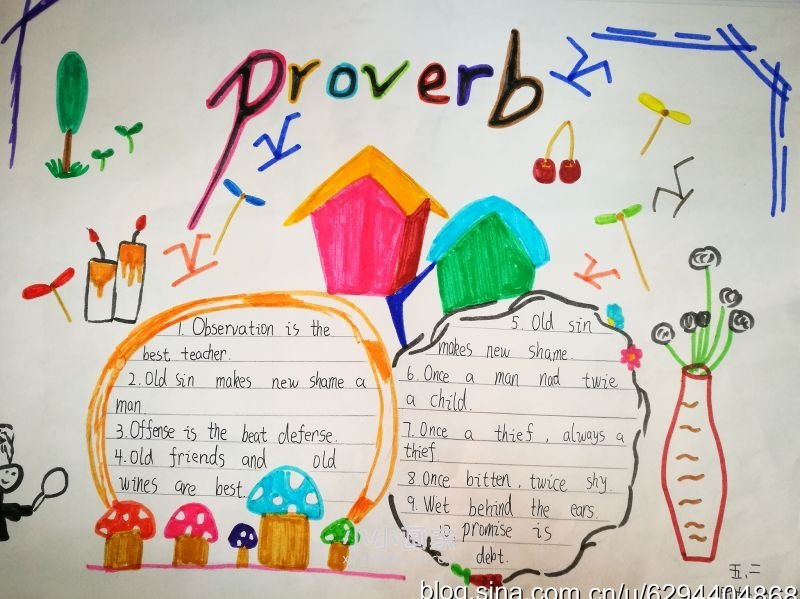 Proverb
1. Observation is the
best teacher.
2. Old sin makes new shame a
man.
3. Offense is the beat defense.
4. Old friends and old
wines are best.
5. Old sin
makes new shame.
6. Once a man nad twie
a child.
7. Once a thief, always a
thief
8. Once bitten, twice shy.
9. Wet behind the ears.
promise is
debt.
五.二
blog.sina.com.cn/u/6294404868